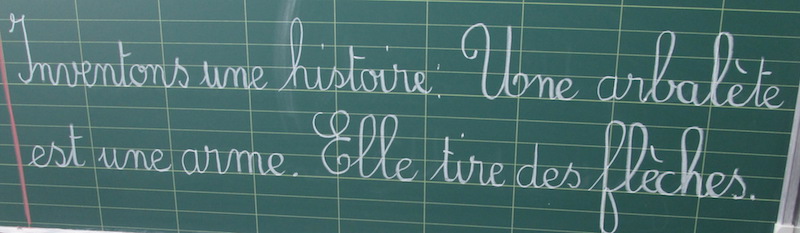 Inventons une histoire: Une arbalète
est une arme. Elle tire des flèches.